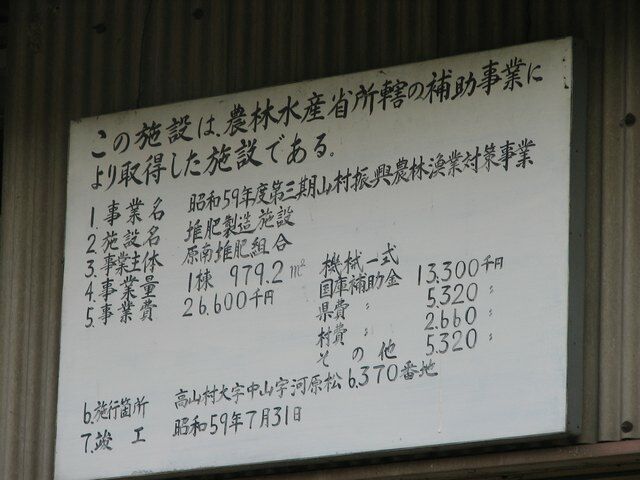 この施設は、農林水産省所轄の補助事業に
より取得した施設である。
1.事業名 昭和59年度第三期山村振興農林漁業対策事業
2.施設名 堆肥製造施設
3.事業主体 原南堆肥組合
4.事業量 1棟 979.2㎡ 機械一式
5.事業費 26.600千円 国庫補助金 13.300千円
県費〃 5.320〃
村費〃 2.660〃
その他 5.320〃
6.施行箇所 高山村大字中山字河原松6.370番地
7.竣工 昭和59年7月31日